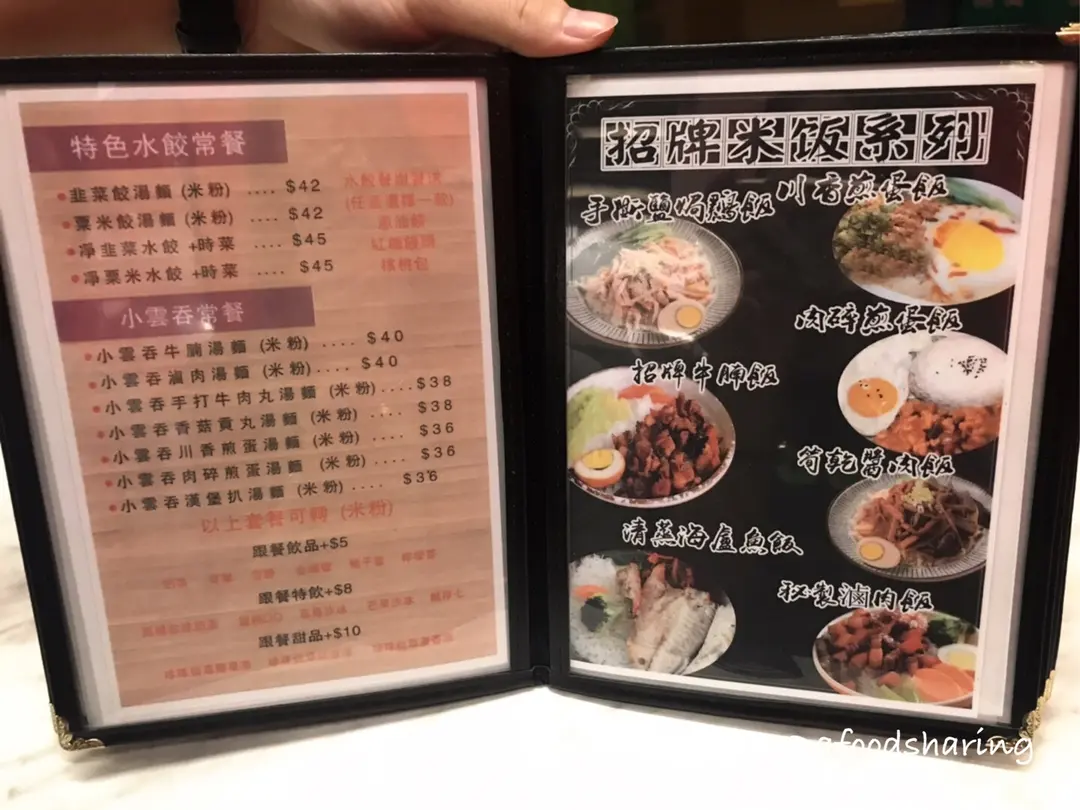 特色水餃常餐
韭菜餃湯麵 (米粉) .... $42
粟米餃湯麵 (米粉) .... $42
凈韭菜水餃 +時菜 .... $45
凈粟米水餃 +時菜 .... $45
(任選
紅糖饅頭
小雲吞常餐
小雲吞牛腩湯麵 (米粉) .... $40
小雲吞滷肉湯麵 (米粉) .... $40
小雲吞手打牛肉丸湯麵 (米粉) .... $38
小雲吞香菇貢丸湯麵 (米粉) .... $38
小雲吞川香煎蛋湯麵 (米粉) .... $36
小雲吞肉碎煎蛋湯麵 (米粉) .... $36
小雲吞漢堡扒湯麵 (米粉) .... $36
以上套餐可轉 (米粉)
跟餐飲品+$5
跟餐特飲+$8
跟餐甜品+$10
招牌米饭系列
手撕鹽焗雞飯
川香煎蛋飯
肉碎煎蛋飯
招牌牛腩飯
筍乾醬肉飯
清蒸海盧魚飯
秘製滷肉飯
foodsharing